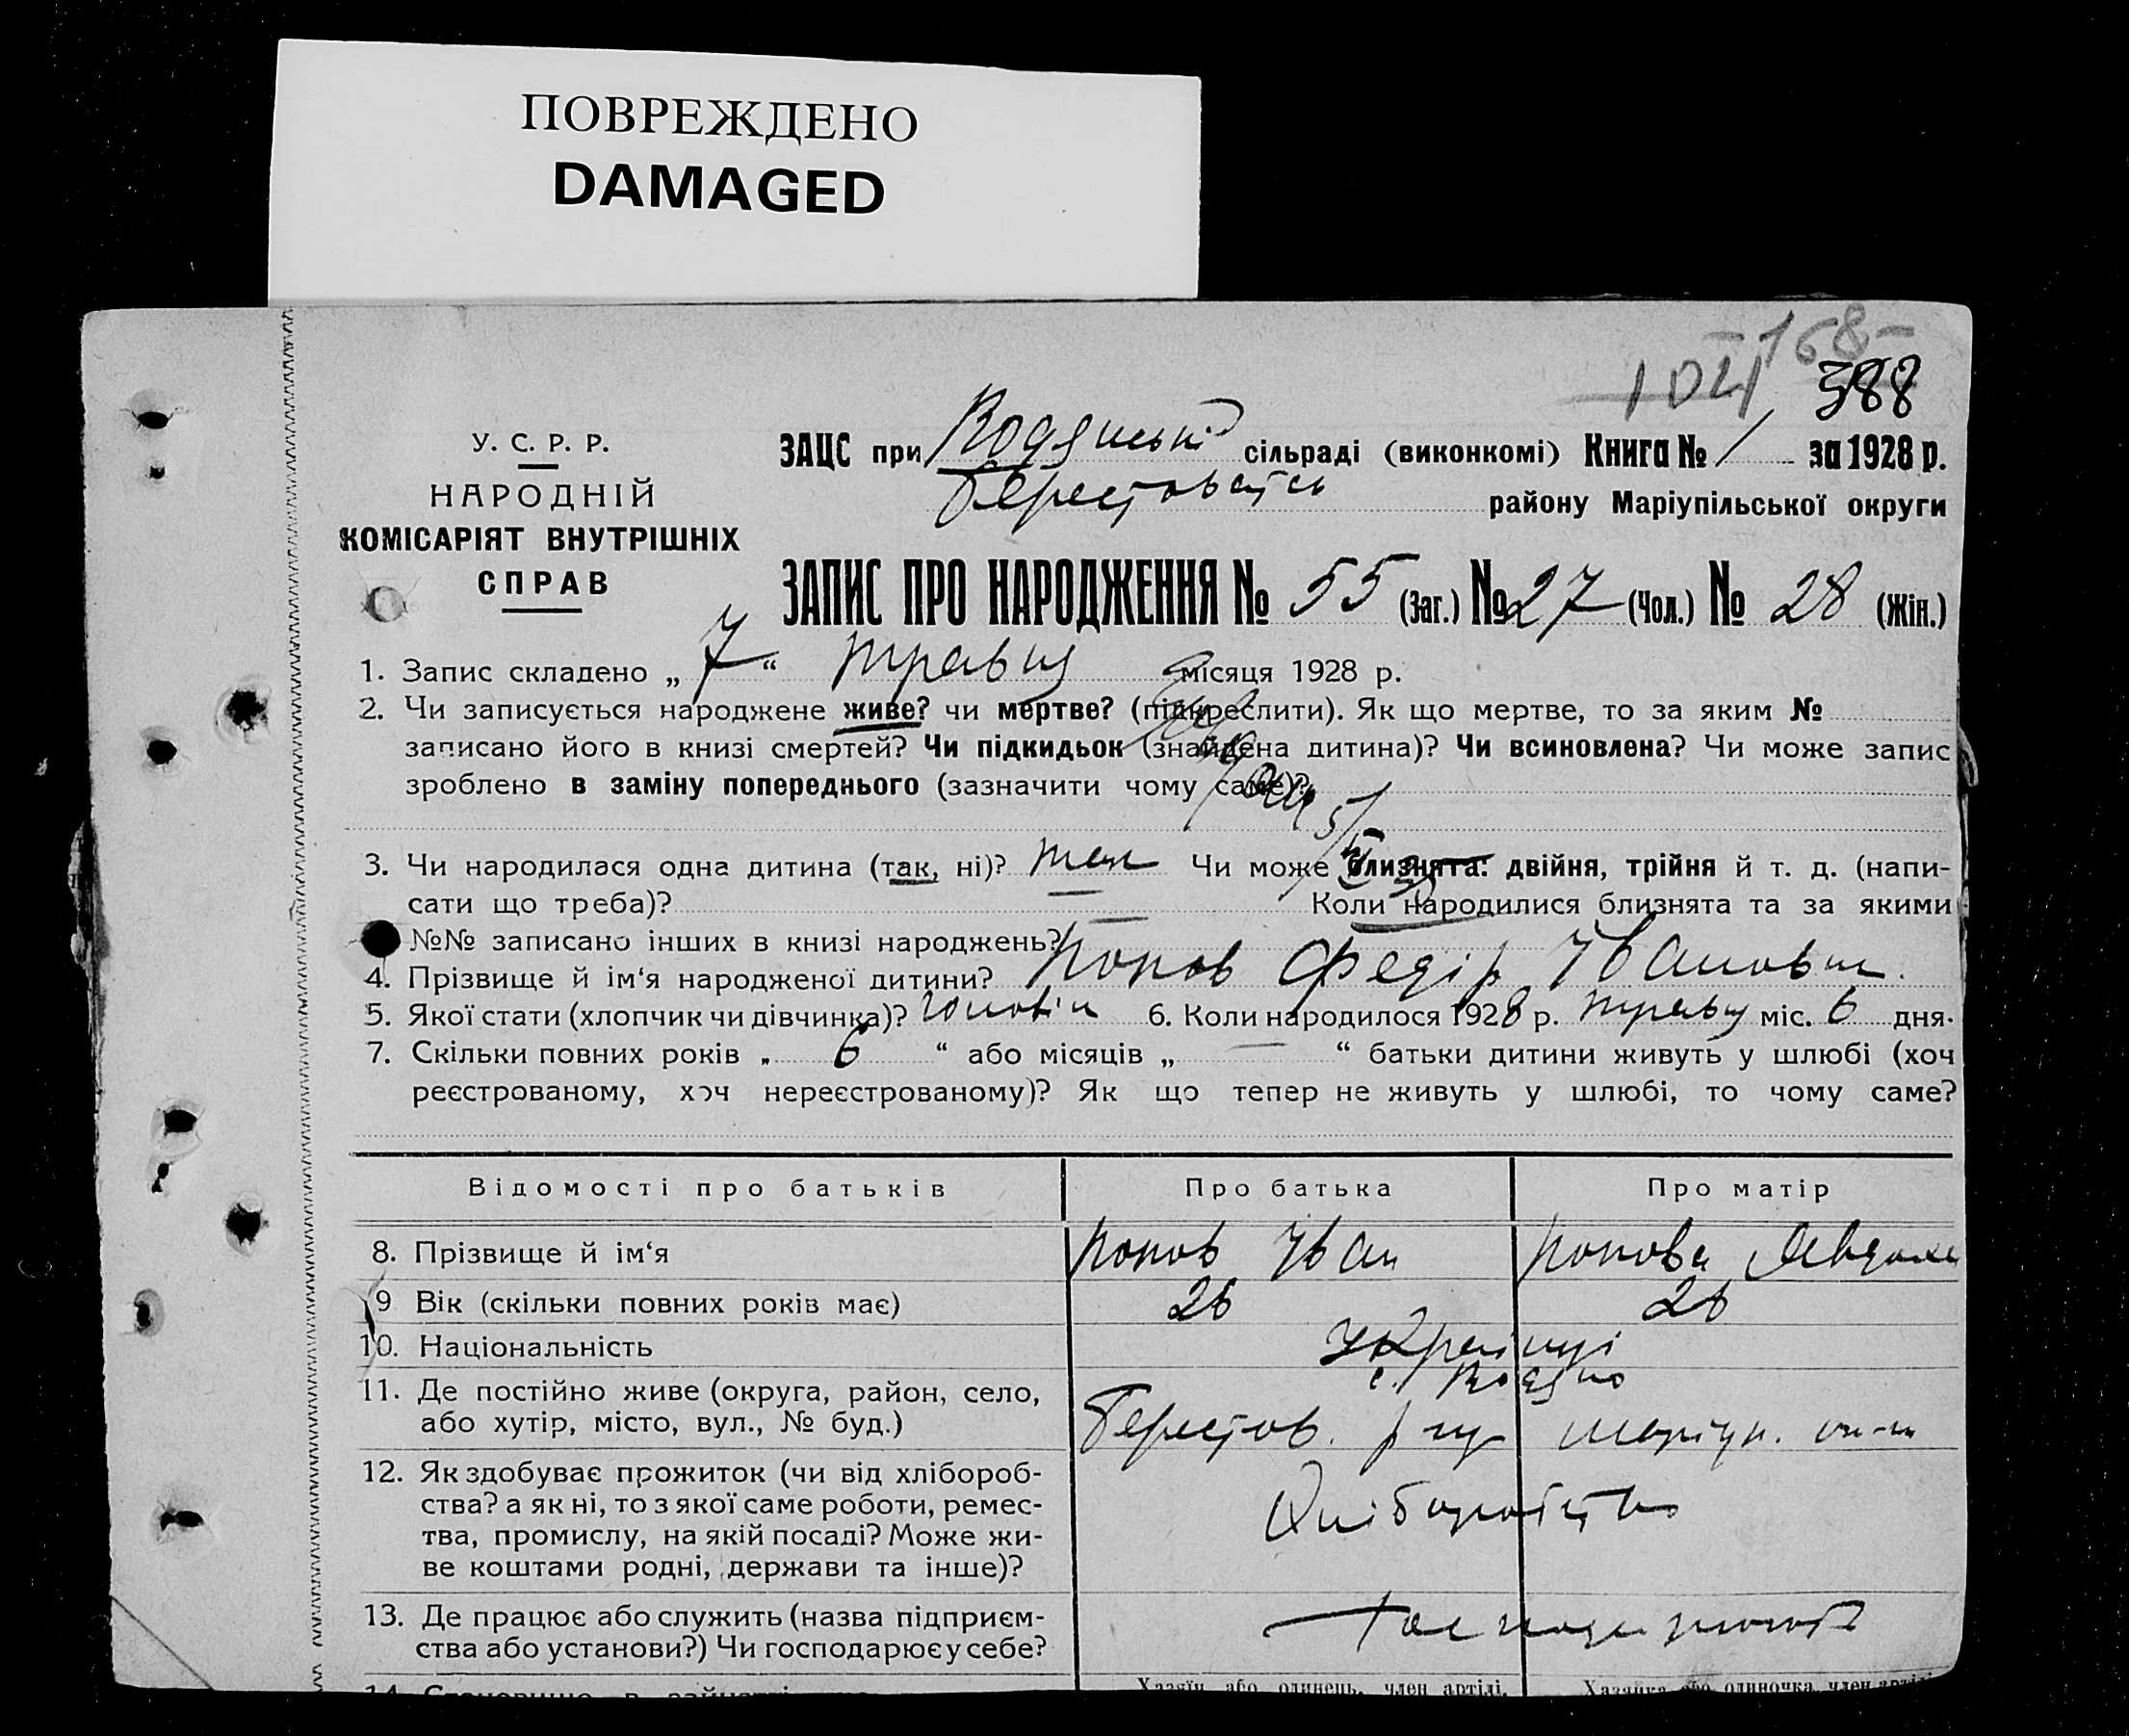 ПОВРЕЖДЕНО
DAMAGED
168-
1021 388
У. С. Р. Р.
НАРОДНІЙ
КОМІСАРІЯТ ВНУТРІШНІХ
СПРАВ
ЗАЦС при Водянські сільраді (виконкомі) Книга № 1 за 1928 р.
Берестовськ району Маріупільської округи
ЗАПИС ПРО НАРОДЖЕННЯ № 55 (Заг.) № 27 (Чол.) № 28 (Жін.)
1. Запис складено „ 7 “ травня місяця 1928 р.
2. Чи записується народжене живе? чи мертве? (підкреслити). Як що мертве, то за яким №
записано його в книзі смертей? Чи підкидьок (знайдена дитина)? Чи всиновлена? Чи може запис
зроблено в заміну попереднього (зазначити чому саме)?
3. Чи народилася одна дитина (так, ні)? так Чи може близнята: двійня, трійня й т. д. (напи-
сати що треба)? Коли народилися близнята та за якими
№№ записано інших в книзі народжень?
4. Прізвище й ім‘я народженої дитини? Попов Федір Іванович.
5. Якої стати (хлопчик чи дівчинка)? чоловіч 6. Коли народилося 1928 р. травня міс. 6 дня.
7. Скільки повних років „ 6 “ або місяців „ — “ батьки дитини живуть у шлюбі (хоч
реєстрованому, хоч нереєстрованому)? Як що тепер не живуть у шлюбі, то чому саме?
Відомості про батьків Про батька Про матір
8. Прізвище й ім‘я Попов Іван Попова Явдоха
9 Вік (скільки повних років має) 26 26
10. Національність Українці
11. Де постійно живе (округа, район, село, с. Водяно
або хутір, місто, вул., № буд.) Берестов. р-ну Маріуп. ок-ги
12. Як здобуває прожиток (чи від хлібороб- Хліборобство
ства? а як ні, то з якої саме роботи, ремес-
тва, промислу, на якій посаді? Може жи-
ве коштами родні, держави та інше)?
13. Де працює або служить (назва підприєм-
ства або установи?) Чи господарює у себе?
Хазяїн або одинець, член артілі, Хазяйка або одиночка, член артілі